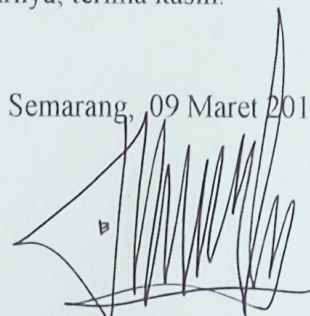 terima kasih.
Semarang, 09 Maret 201